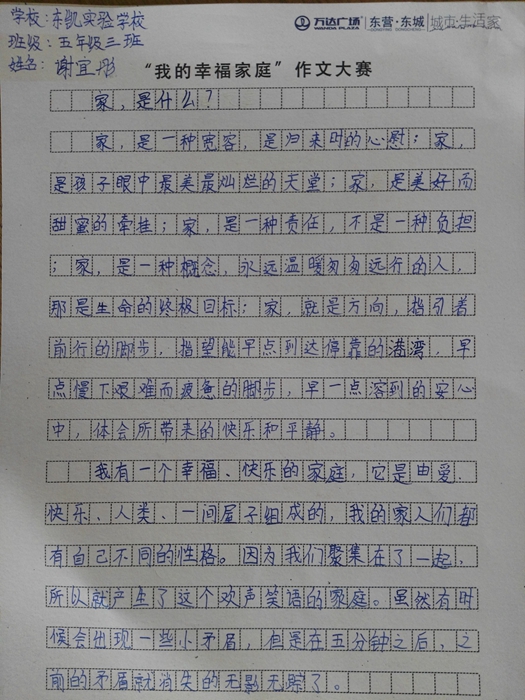 学校:东凯实验学校
班级:五年级三班
姓名:谢宜彤
万达广场 WANDA PLAZA 东营·东城 DONGYING·DONGCHENG 城市·生活家
“我的幸福家庭”作文大赛
家,是什么?
家,是一种宽容,是归来时的心慰;家,
是孩子眼中最美最灿烂的天堂;家,是美好而
甜蜜的牵挂;家,是一种责任,不是一种负担
;家,是一种概念,永远温暖匆匆远行的人,
那是生命的终极目标;家,就是方向,指引着
前行的脚步,指望能早点到达停靠的港湾,早
点慢下艰难而疲惫的脚步,早一点溶到的安心
中,体会所带来的快乐和平静。
我有一个幸福、快乐的家庭,它是由爱、
快乐、人类、一间屋子组成的,我的家人们都
有自己不同的性格。因为我们聚集在了一起,
所以就产生了这个欢声笑语的家庭。虽然有时
候会出现一些小矛盾,但是在五分钟之后,之
前的矛盾就消失的无影无踪了。